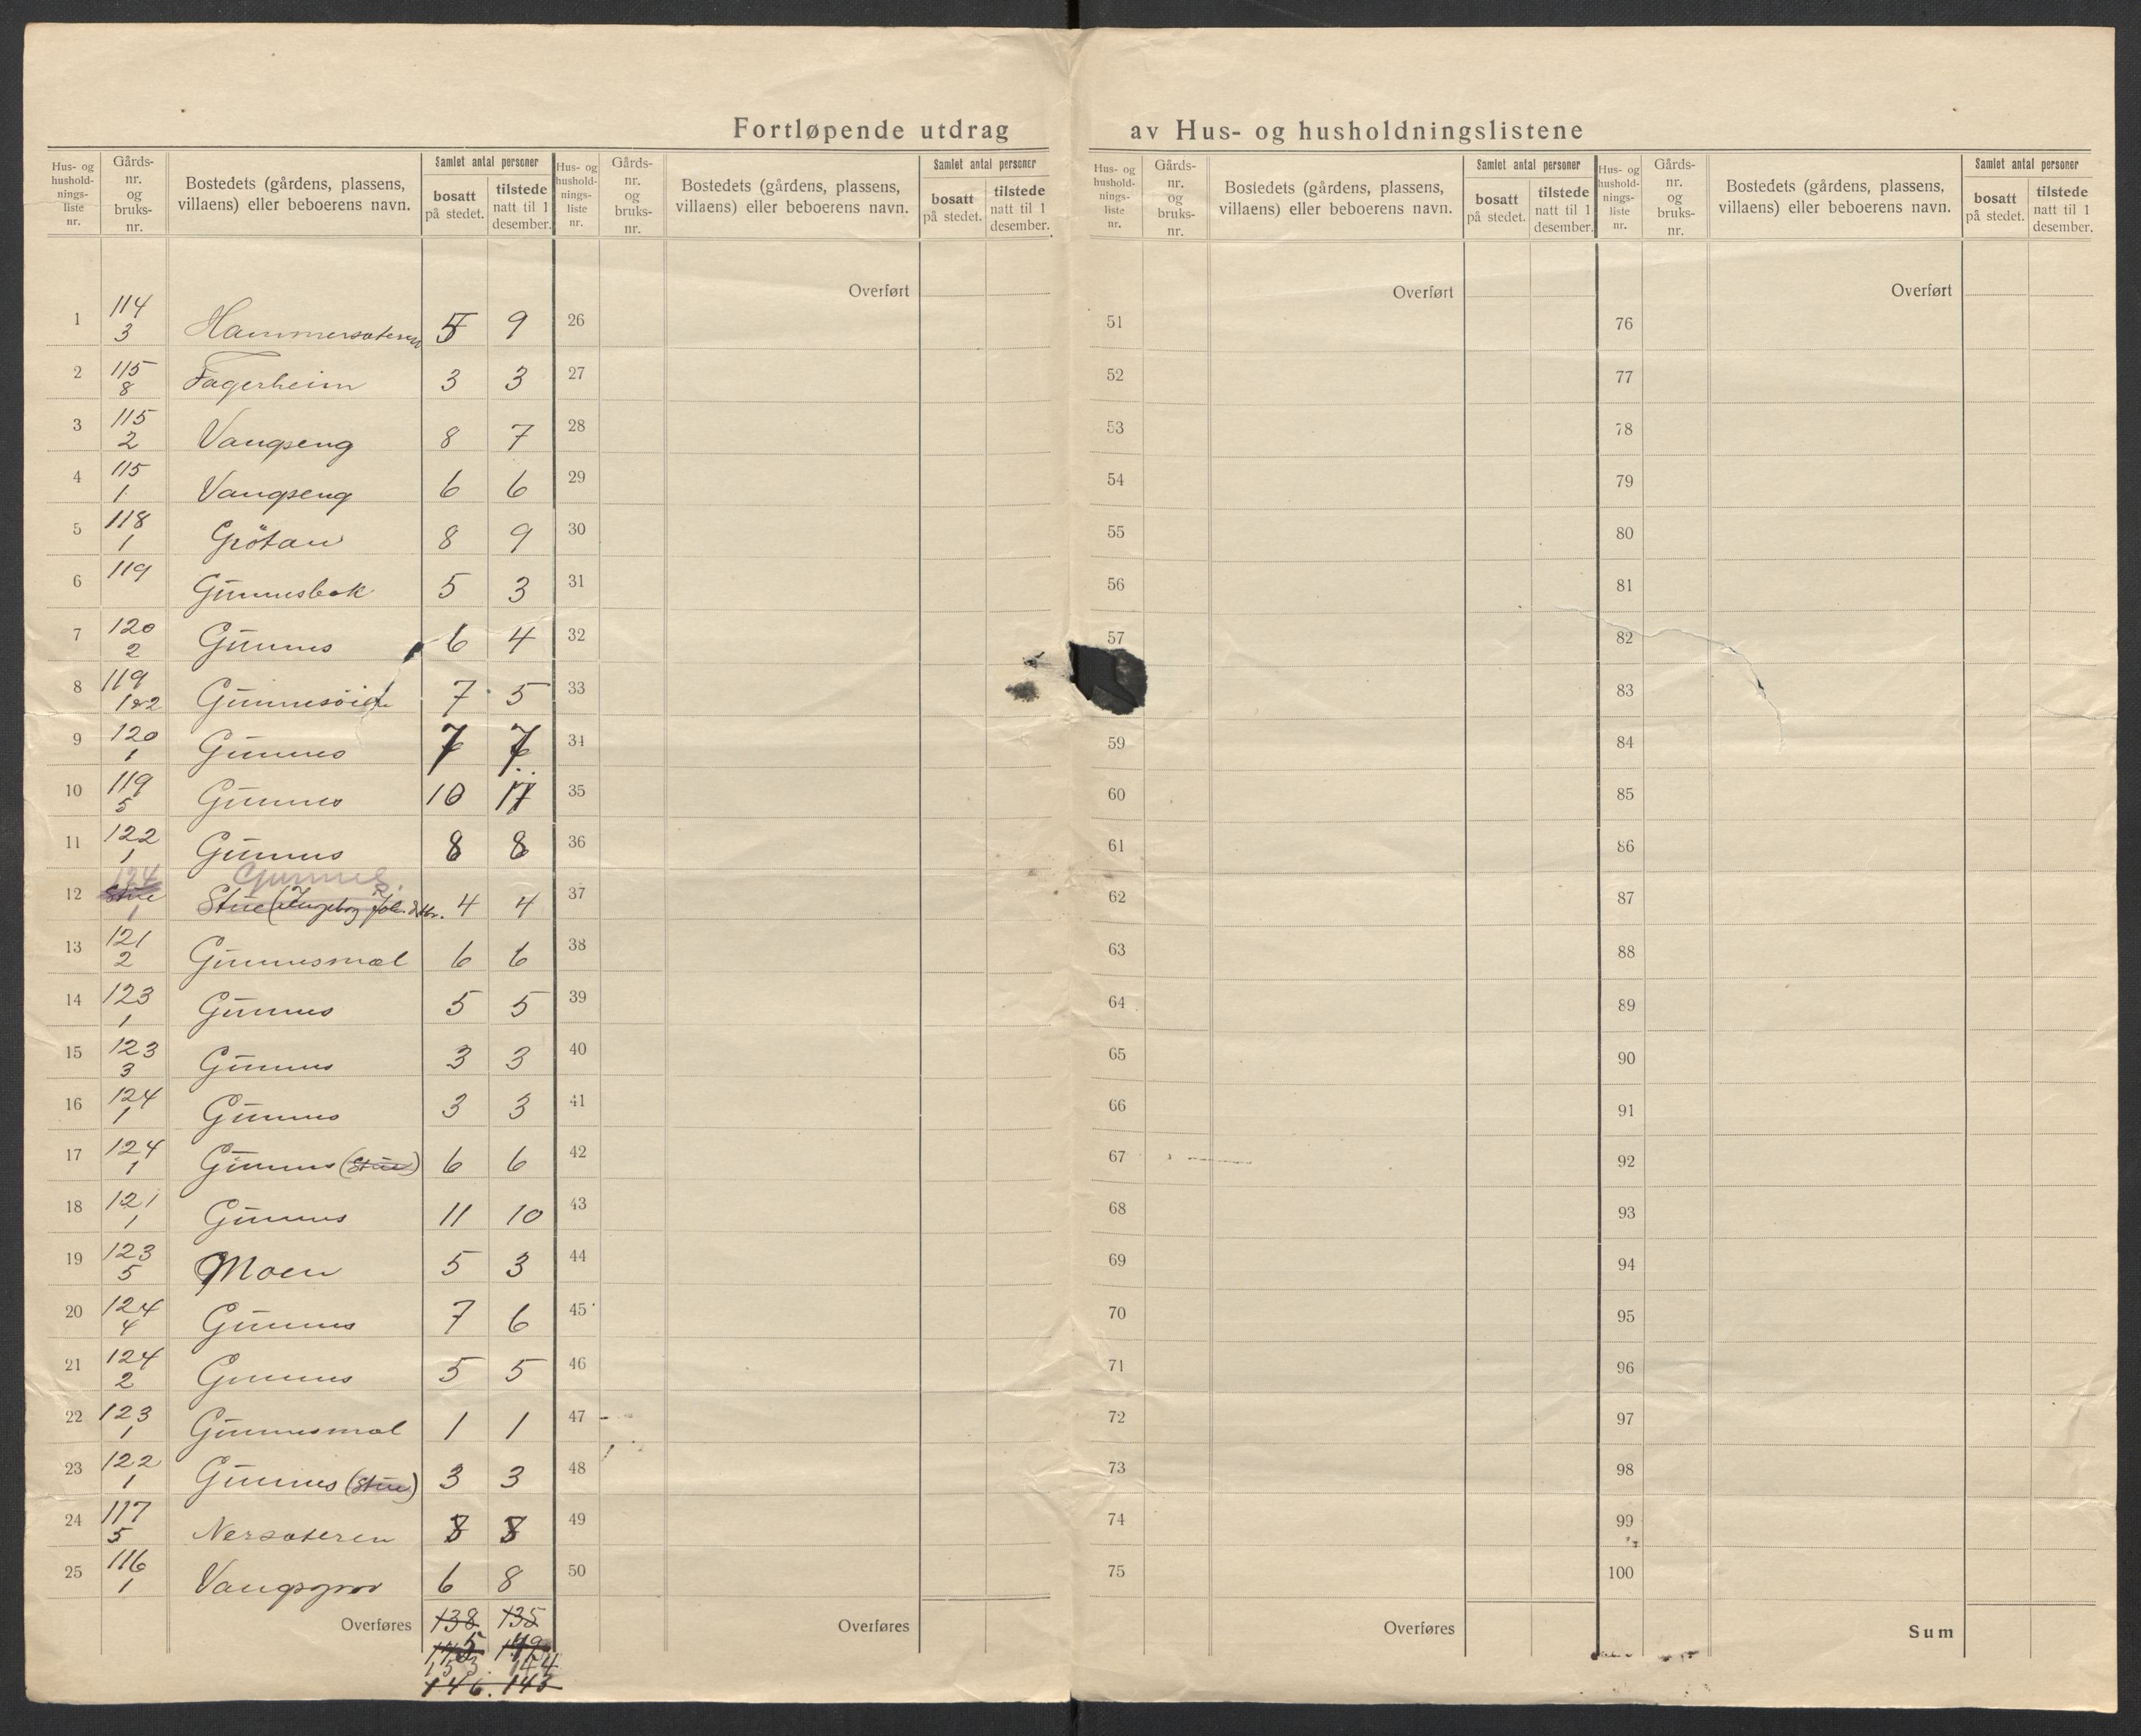 Fortløpende utdrag av Hus- og husholdningslistene
Hus- og hushold- nings- liste nr. Gårds- nr. og bruks- nr. Bostedets (gårdens, plassens, villaens) eller beboerens navn. Samlet antal personer bosatt på stedet. tilstede natt til 1 desember.
Hus- og hushold- nings- liste nr. Gårds- nr. og bruks- nr. Bostedets (gårdens, plassens, villaens) eller beboerens navn. Samlet antal personer bosatt på stedet. tilstede natt til 1 desember.
Hus- og hushold- nings- liste nr. Gårds- nr. og bruks- nr. Bostedets (gårdens, plassens, villaens) eller beboerens navn. Samlet antal personer bosatt på stedet. tilstede natt til 1 desember.
Hus- og hushold- nings- liste nr. Gårds- nr. og bruks- nr. Bostedets (gårdens, plassens, villaens) eller beboerens navn. Samlet antal personer bosatt på stedet. tilstede natt til 1 desember.
1 114 3 Hammersæteren 5 9
2 115 8 Fagerheim 3 3
3 115 2 Vangseng 8 7
4 115 1 Vangseng 6 6
5 118 1 Grötan 8 9
6 119 Gunnesbak 5 3
7 120 2 Gunnes 6 4
8 119 1&2 7 5
9 120 1 Gunnes 7 7
10 119 5 Gunnes 10
11 122 1 Gunnes 8 8
12 124 1 Gunnes Stue 4 4
13 121 2 Gunnesmæl 6 6
14 123 1 Gunnes 5 5
15 123 3 Gunnes 3 3
16 124 1 Gunnes 3 3
17 124 1 Gunnes (Stue) 6 6
18 121 1 Gunnes 11 10
19 123 5 Moen 5 3
20 124 4 Gunnes 7 6
21 124 2 Gunnes 5 5
22 123 1 Gunnesmæl 1 1
23 122 1 Gunnes (Stue) 3 3
24 117 5 Nersæteren 8 8
25 116 1 Vangsgrov 6 8
Overføres 138 135
153. 144
146. 143
Overført
26
27
28
29
30
31
32
33
34
35
36
37
38
39
40
41
42
43
44
45
46
47
48
49
50
Overføres
Overført
51
52
53
54
55
56
57
59
60
61
62
63
64
65
66
67
68
69
70
71
72
73
74
75
Overføres
Overført
76
77
78
79
80
81
82
83
84
85
86
87
88
89
90
91
92
93
94
95
96
97
98
99
100
Sum